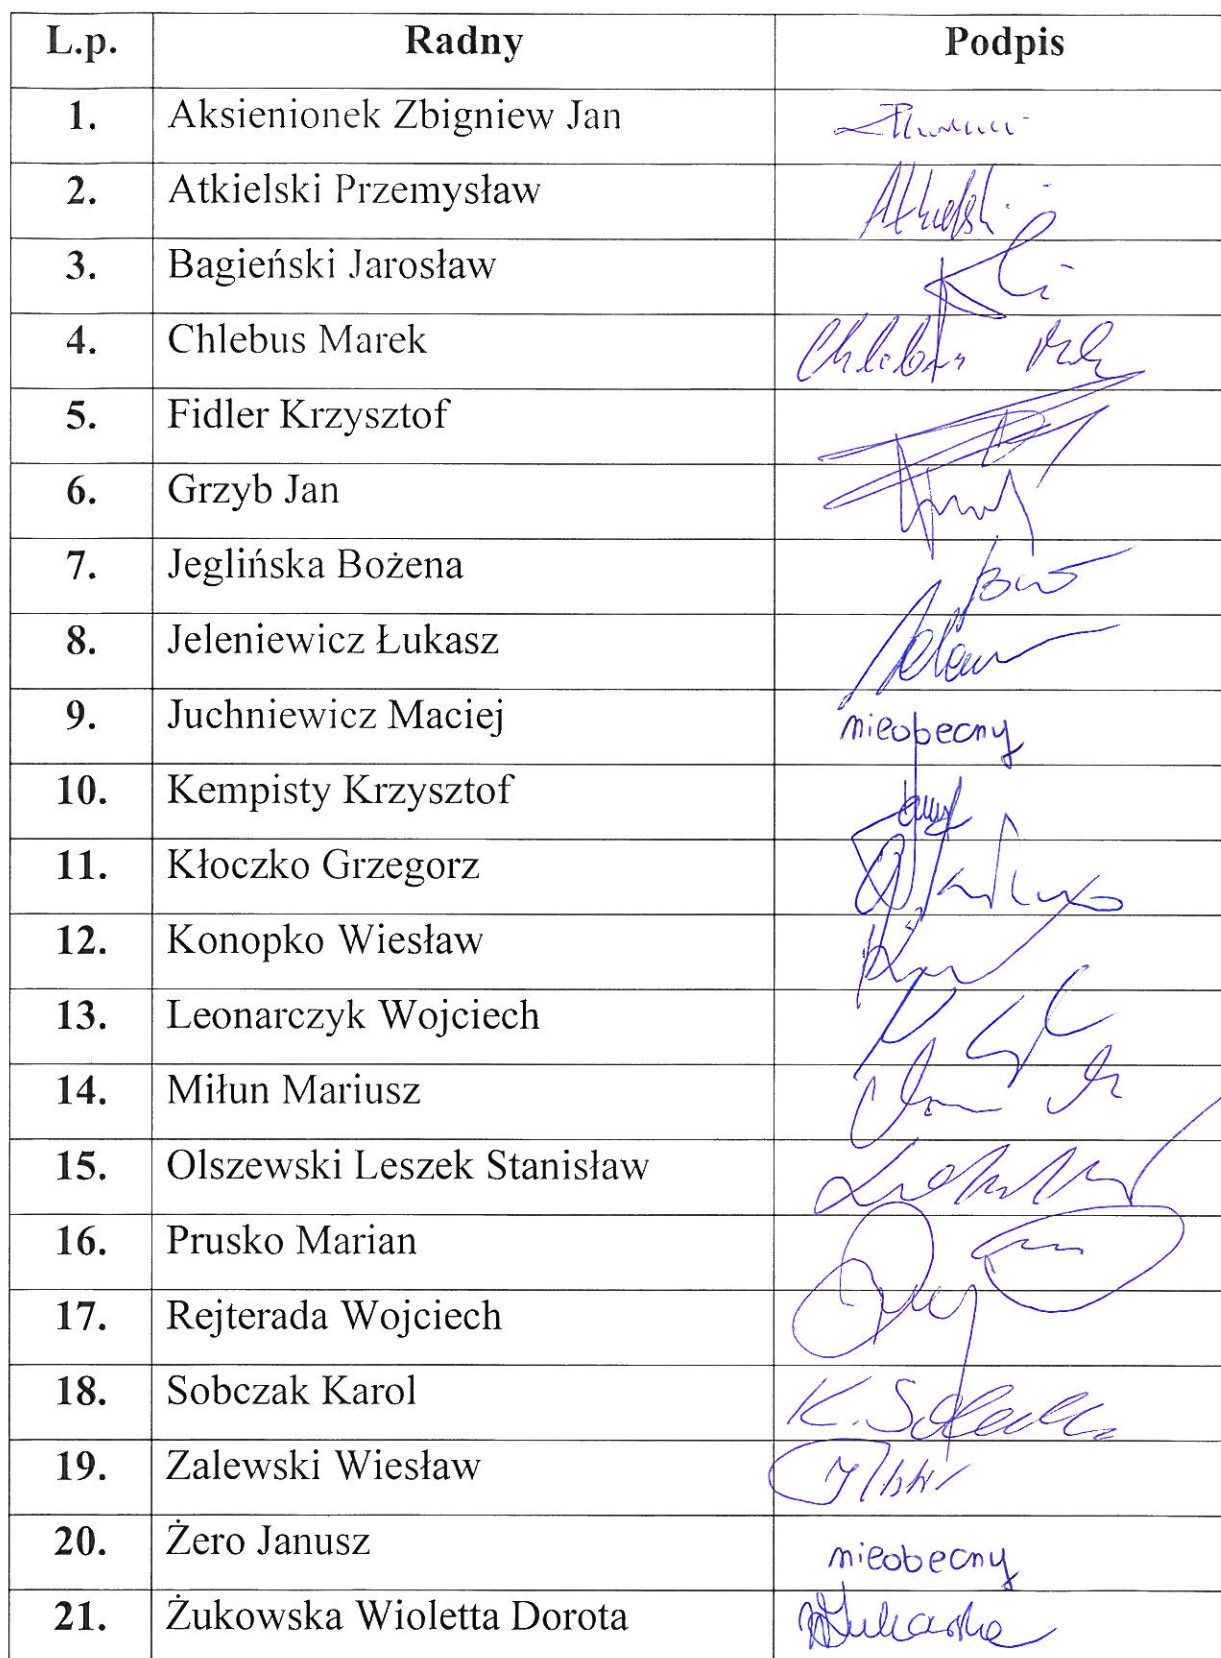 L.p. Radny Podpis
1. Aksienionek Zbigniew Jan
2. Atkielski Przemysław Atkielski
3. Bagieński Jarosław
4. Chlebus Marek Chlebus
5. Fidler Krzysztof
6. Grzyb Jan
7. Jeglińska Bożena
8. Jeleniewicz Łukasz
9. Juchniewicz Maciej nieobecny
10. Kempisty Krzysztof
11. Kłoczko Grzegorz
12. Konopko Wiesław
13. Leonarczyk Wojciech
14. Miłun Mariusz
15. Olszewski Leszek Stanisław
16. Prusko Marian
17. Rejterada Wojciech
18. Sobczak Karol K. Sobczak
19. Zalewski Wiesław
20. Żero Janusz nieobecny
21. Żukowska Wioletta Dorota WŻukowska